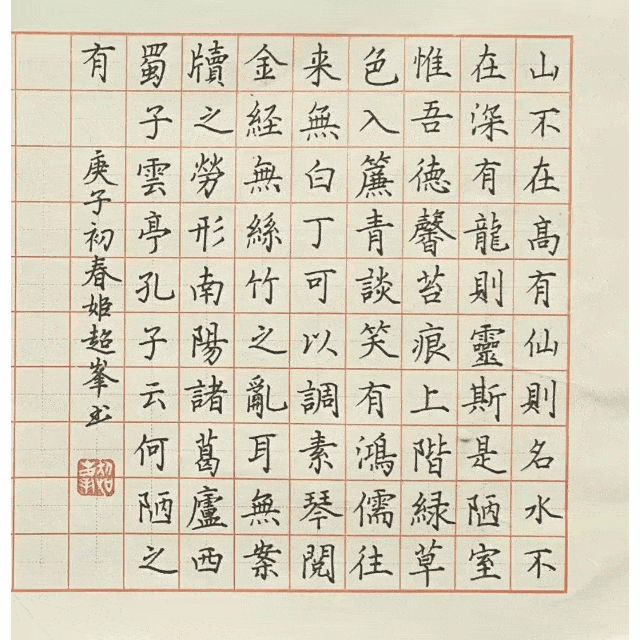 山不在高有仙則名水不
在深有龍則靈斯是陋室
惟吾德馨苔痕上階緑草
色入簾青談笑有鴻儒往
来無白丁可以調素琴閱
金経無絲竹之亂耳無案
牘之勞形南陽諸葛廬西
蜀子雲亭孔子云何陋之
有
庚子初春姬超峯书